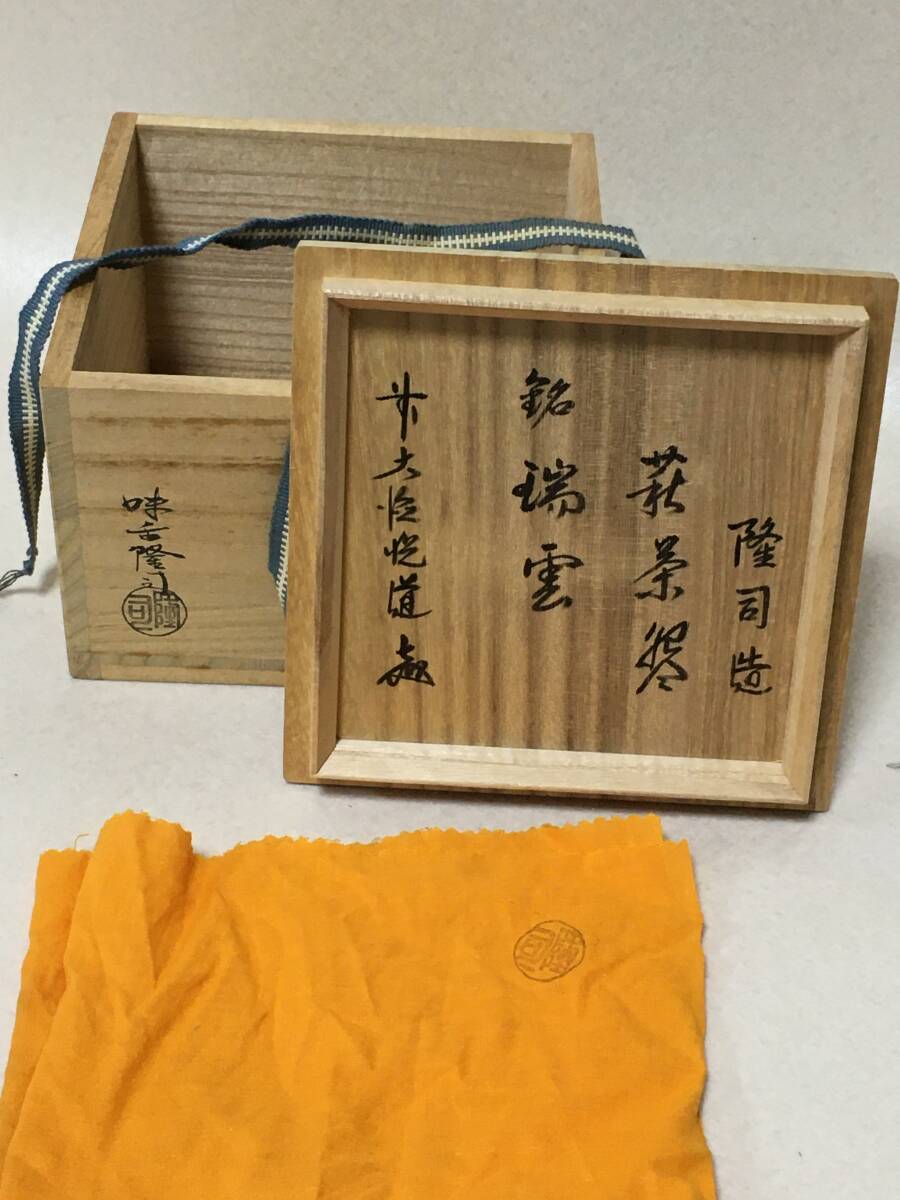 隆司造
萩茶碗
銘 瑞雲
大悦道
味舌隆司
隆司
隆司